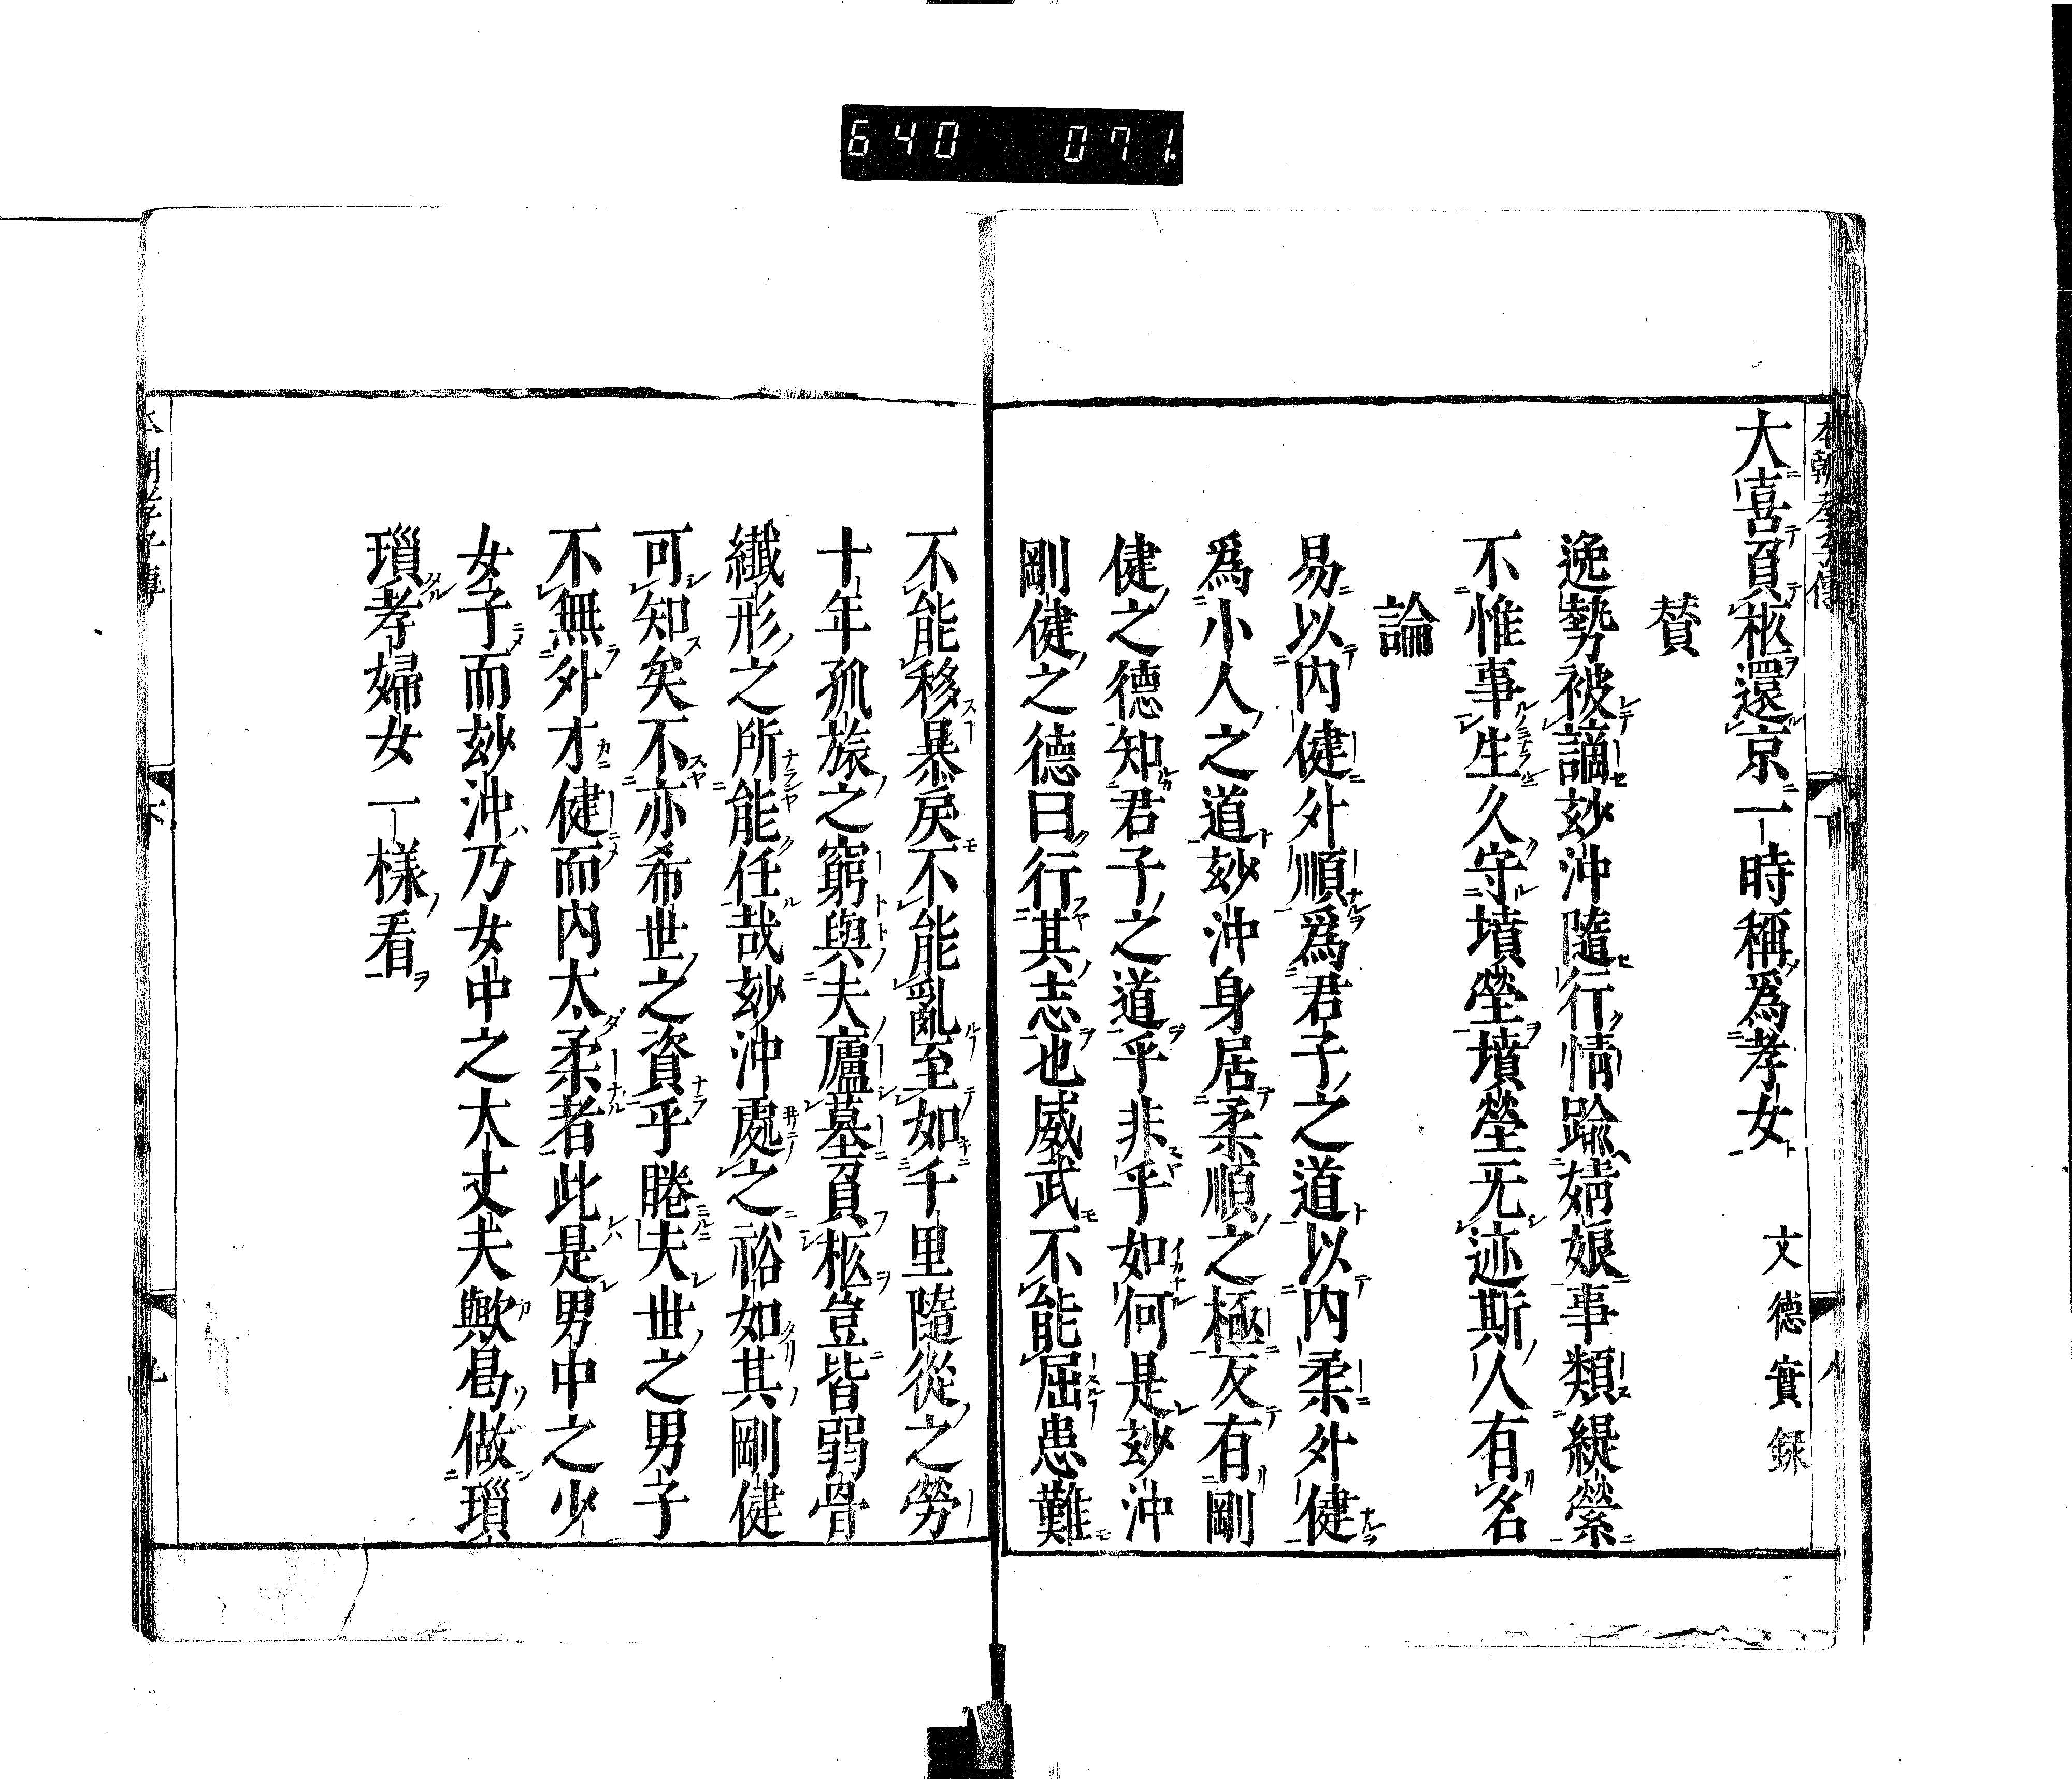 640 071
本朝孝子傳 下 八
大喜負柩還京一時稱爲孝女 文德實錄
賛
逸勢被謫玅沖隨行情踰婧娘事類緹縈
不惟事生久守墳塋墳塋无迹斯人有名
論
易以内健外順爲君子之道以内柔外健
爲小人之道玅沖身居柔順之極反有剛
健之德知君子之道乎非乎如何是玅沖
剛健之德曰行其志也威武不能屈患難
不能移暴戾不能亂至如千里隨從之勞
十年孤旅之窮與夫廬墓負柩豈皆弱骨
纖形之所能任哉玅沖處之裕如其剛健
可知矣不亦希世之資乎睠夫世之男子
不無外才健而内太柔者此是男中之少
女子而玅沖乃女中之大丈夫歟曷做瑣
瑣孝婦女一樣看
本朝孝子傳 下 九